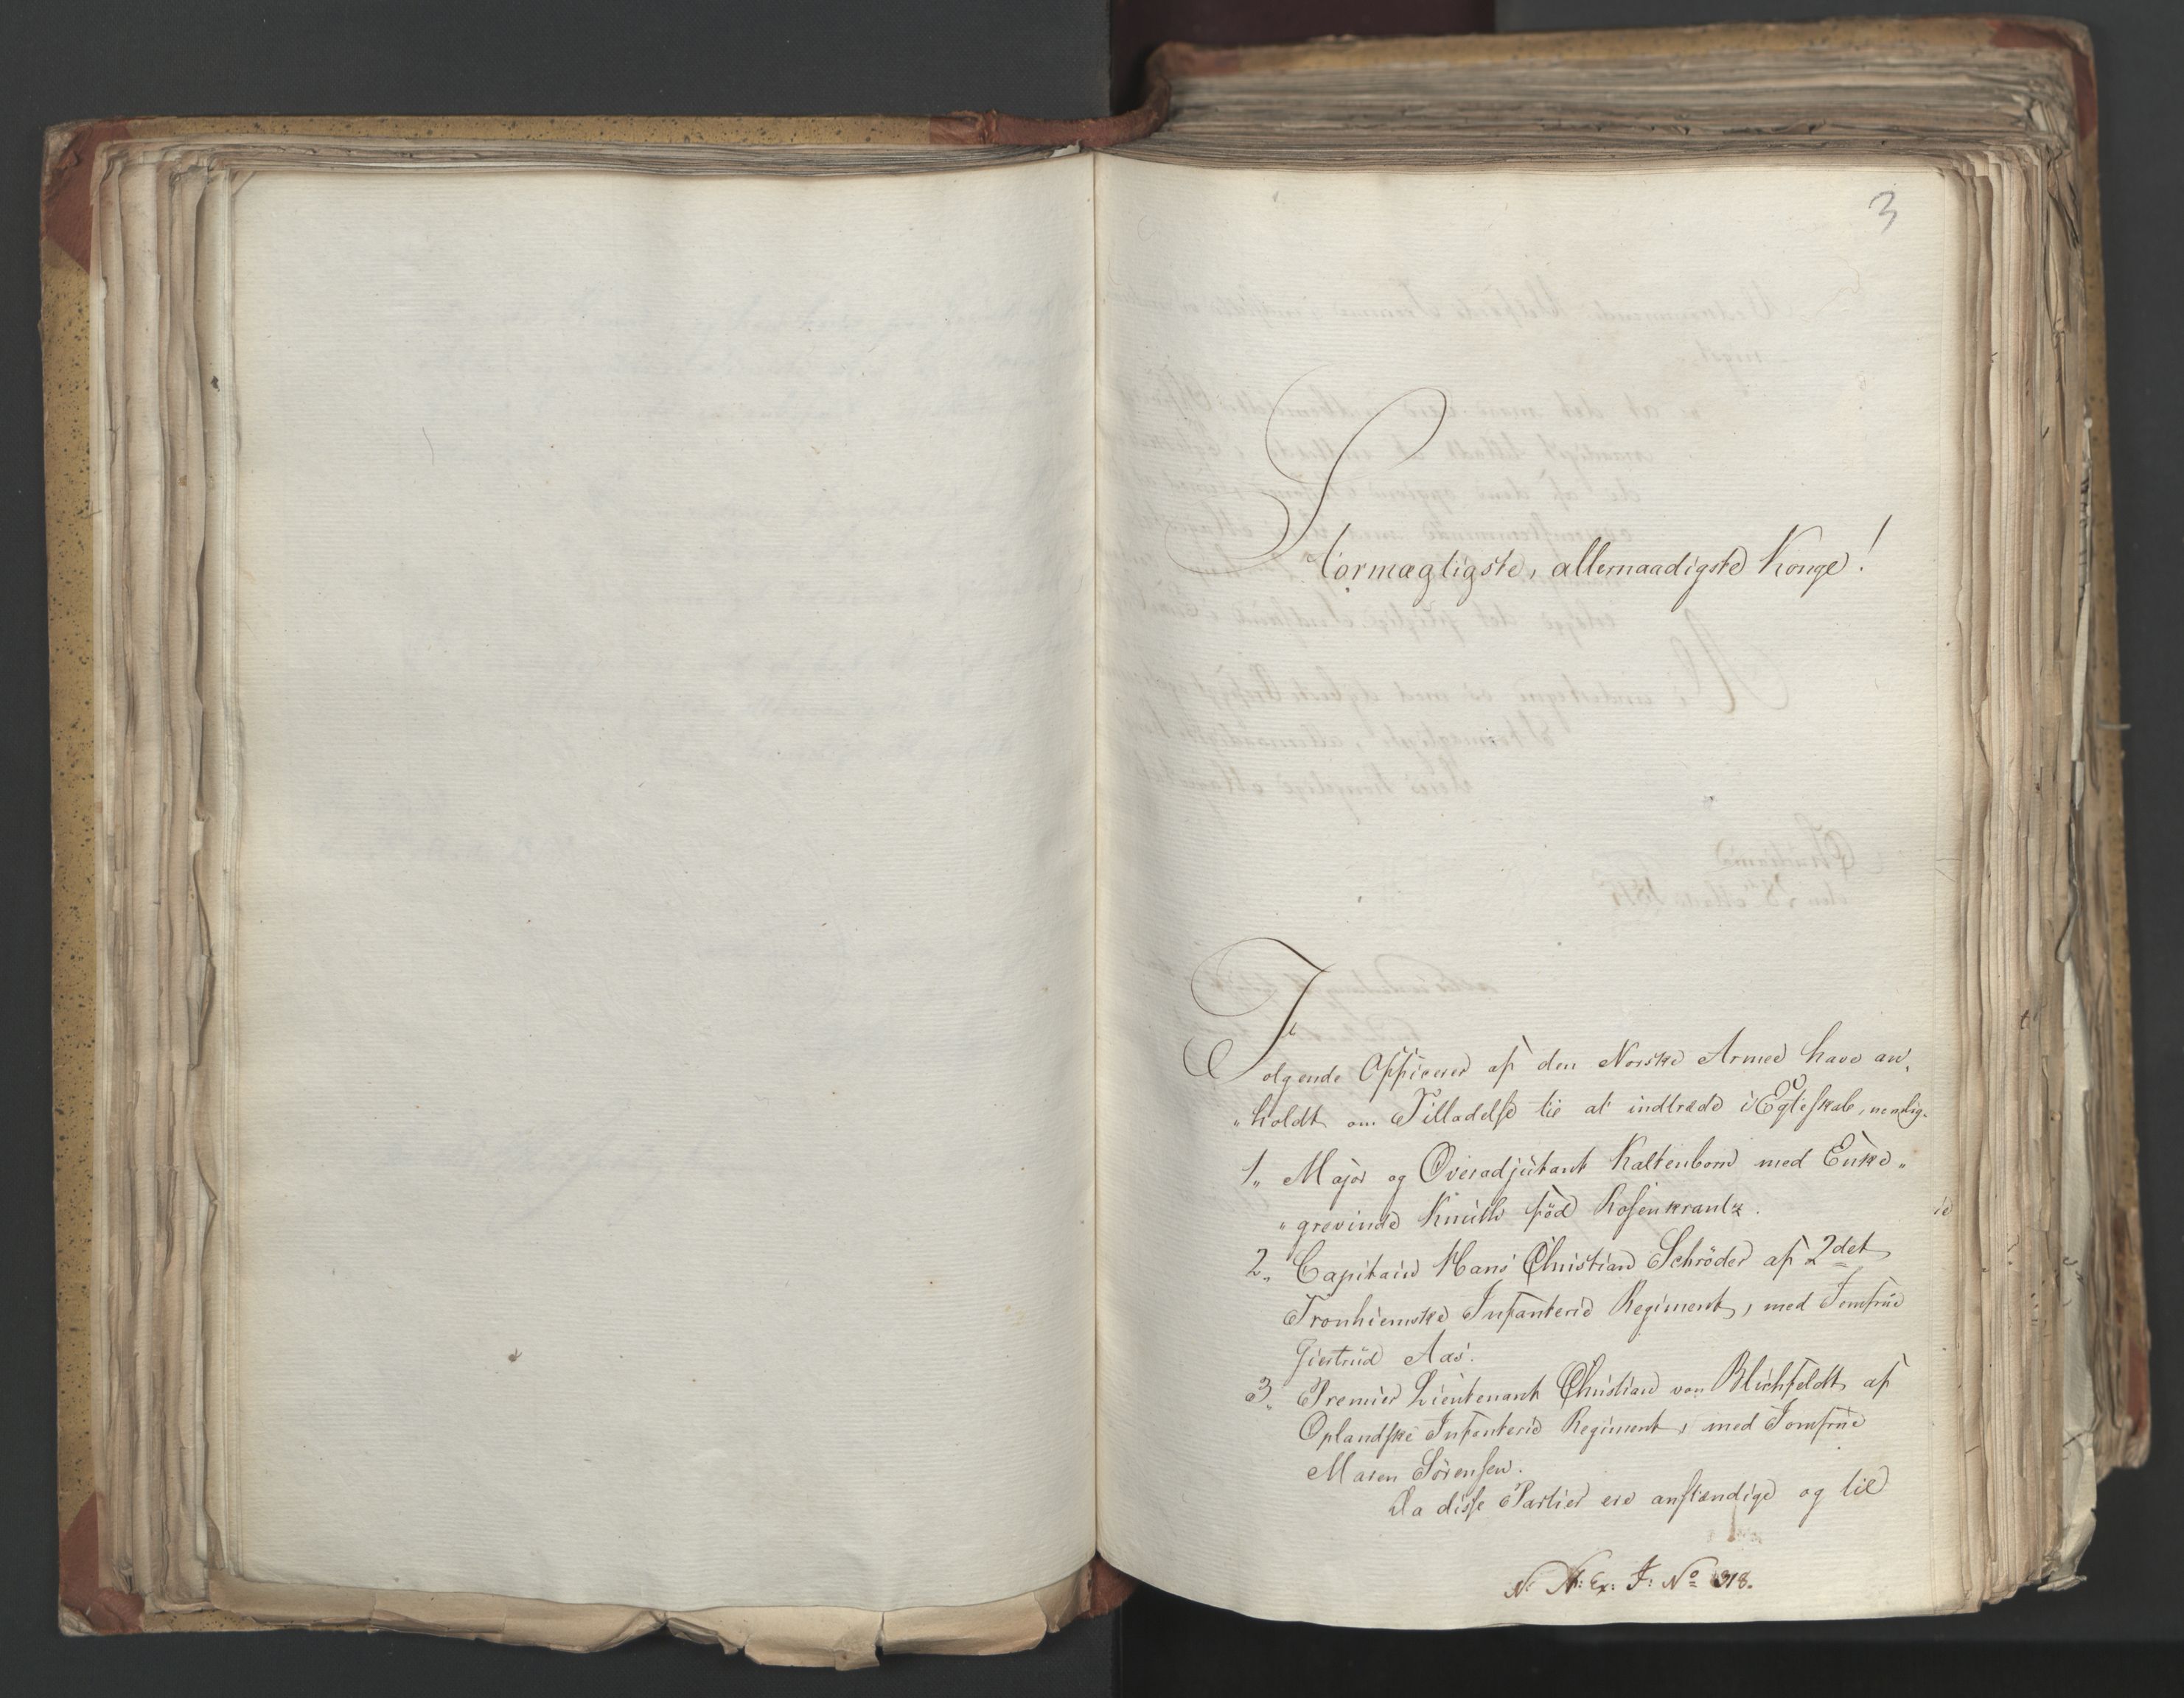 3
Stormægtigste, allernaadigste Konge!
Følgende Officerer af den Norske Armee have an„
„holdt om Tilladelse til at indtræde i Egteskab, nemlig.
1„ Major og Overadjutant Kaltenborn med Enke„
„grevinde Knuth föd Rosenkrantz.
2„ Capitain Hans Christian Schröder af 2det
Tronhiemske Infanterie Regiment, med Jomfrue
Giertrüd Aas.
3„ Premier Lieutenant Christian von Blichfeldt af
Oplandske Infanterie Regiment, med Jomfrue
Maren Sörensen.
Da disse Partier ere anstændige og til
N: A: Ex: J: No 318.